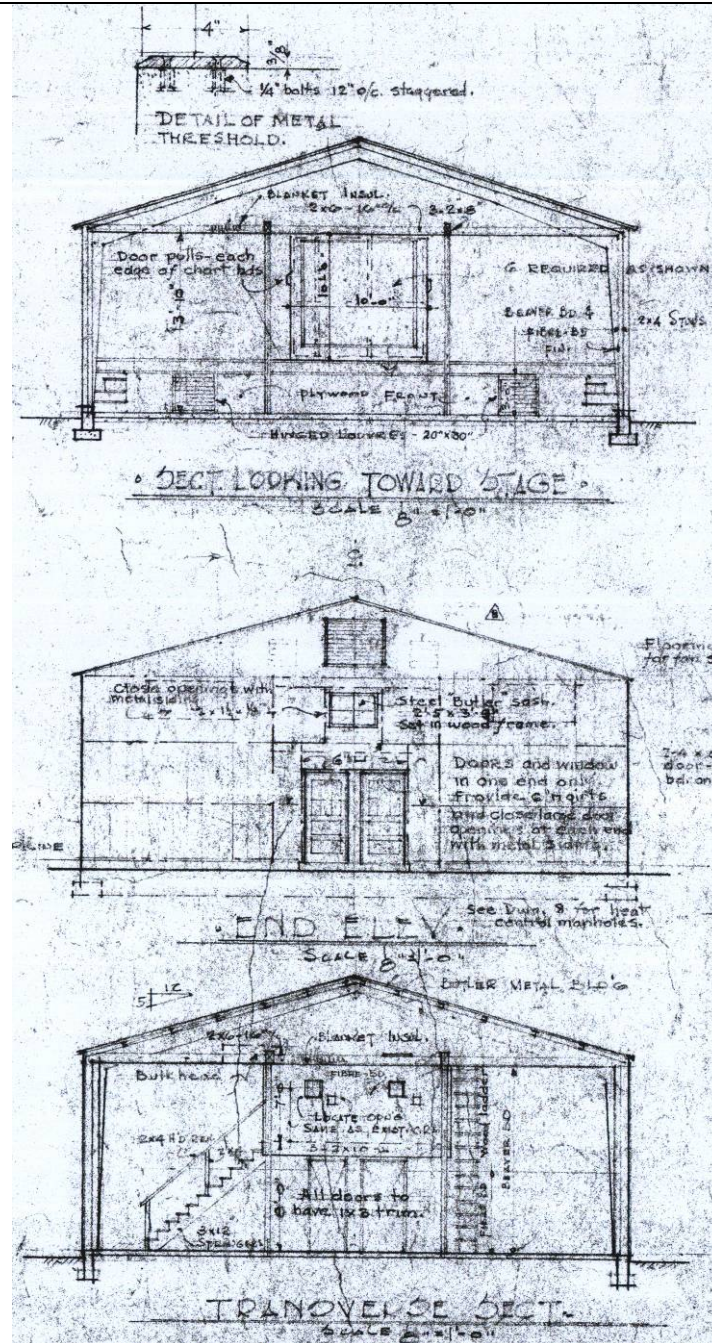 4"
3/8"
1/4" bolts 12" o/c. staggered.
DETAIL OF METAL
THRESHOLD.
BLANKET INSUL.
2x6-16" o/c
3-2x8"
Door pulls-each
edge of chart bds
10'-0"
6 REQUIRED AS SHOWN
BEAVER BD &
FIBRE-BD
FIN.
2x4 STUDS
PLYWOOD FRONT
HINGED LOUVRES - 20"x30"
SECT. LOOKING TOWARD STAGE
SCALE 1/8" = 1'-0"
8
Flooring
Close openings with
metal siding
Steel "Butler" sash.
Set in wood frame.
DOORS and window
in one end only
Provide girts
and close large door
openings at each end
with metal siding.
2-4 x
door-
bd. on
LINE
END ELEV.
See Dwn. 8 for heat
control manholes.
SCALE 1/8" = 1'-0"
12
5
BUTLER METAL BLD'G
2x6-16" o/c
BLANKET INSUL.
FIBRE-BD
Bulkhead
LOCATE OPNG
SAME AS EXIST'G
2x4 HD. RAIL
3-2x10
All doors to
have 1x3 trim.
3x12
STRINGERS
Wood ladder
FIBRE BD
BEAVER BD
TRANSVERSE SECT.
SCALE 1/8" = 1'-0"